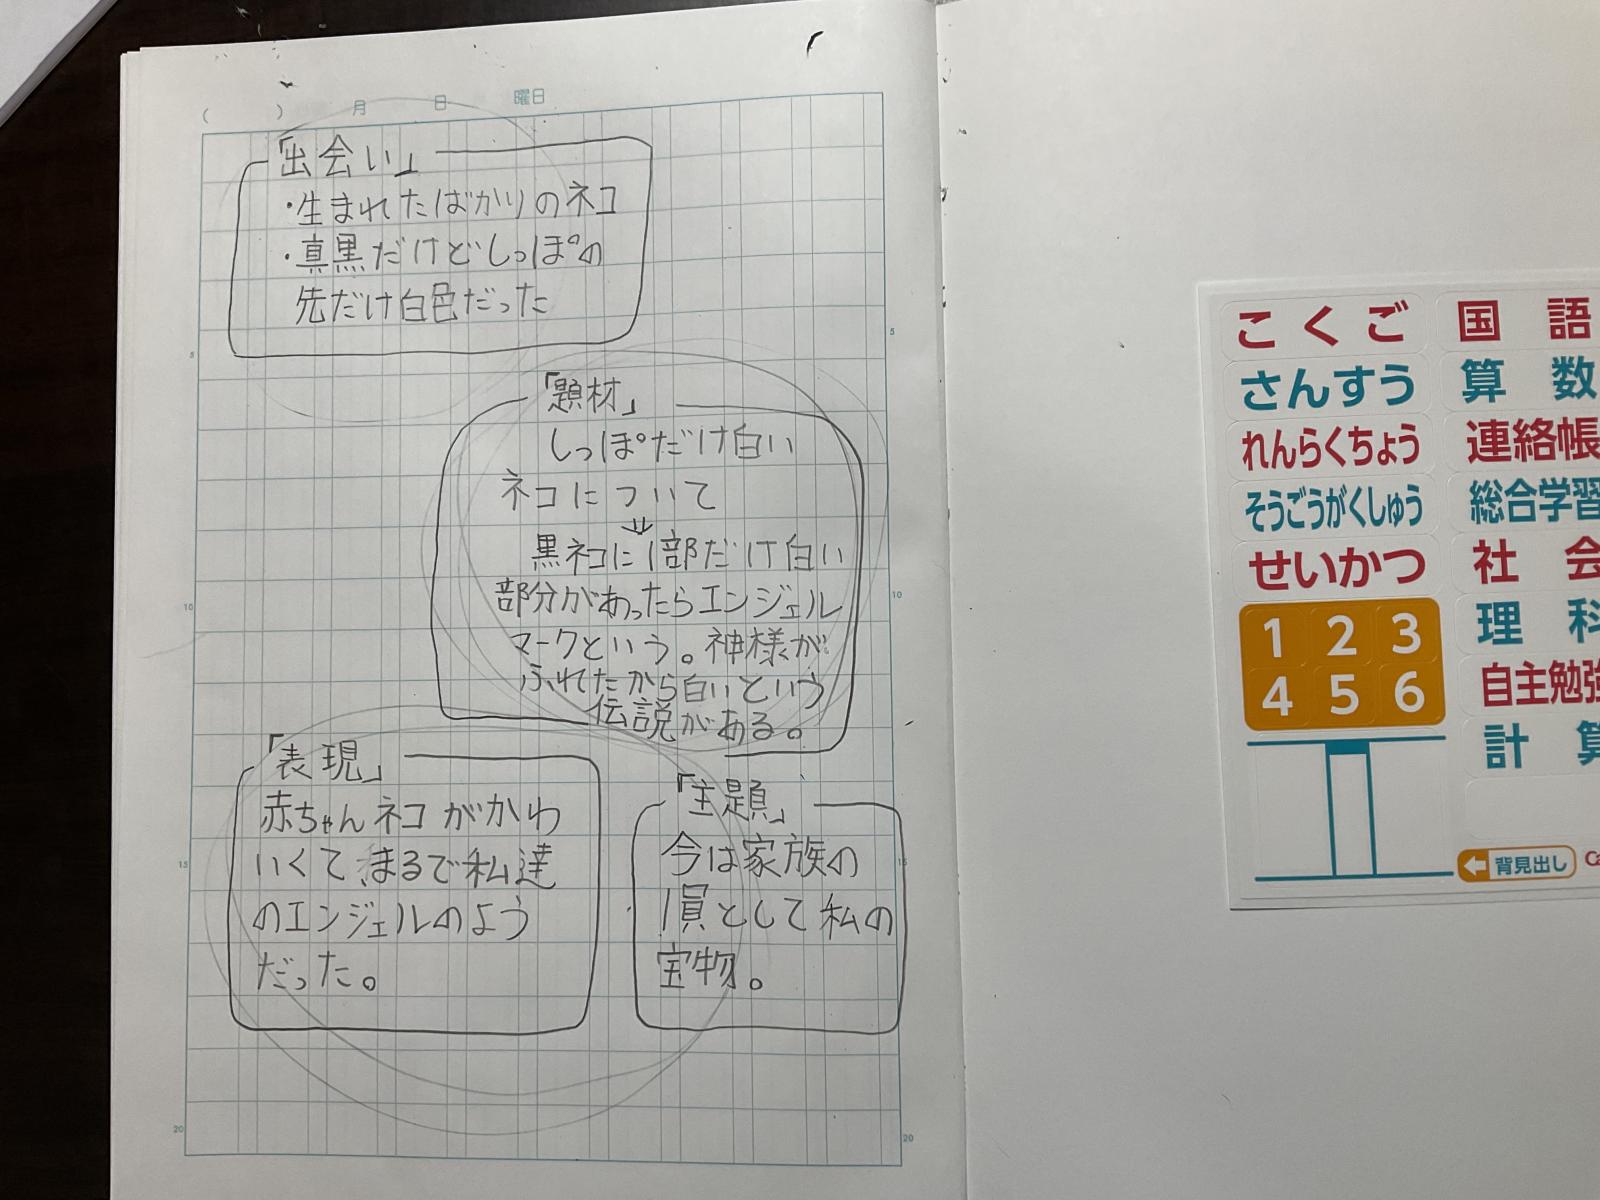 ( ) 月 日 曜日
「出会い」
・生まれたばかりのネコ
・真黒だけどしっぽの
先だけ白色だった
「題材」
しっぽだけ白い
ネコについて
⇓
黒ネコに1部だけ白い
部分があったらエンジェル
マークという。神様が
ふれたから白いという
伝説がある。
「表現」
赤ちゃんネコがかわ
いくてまるで私達
のエンジェルのよう
だった。
「主題」
今は家族の
1員として私の
宝物。
5
10
15
20
5
10
15
20
こくご
さんすう
れんらくちょう
そうごうがくしゅう
せいかつ
1 2 3
4 5 6
国語
算数
連絡帳
総合学習
社会
理科
自主勉強
計算
背見出し